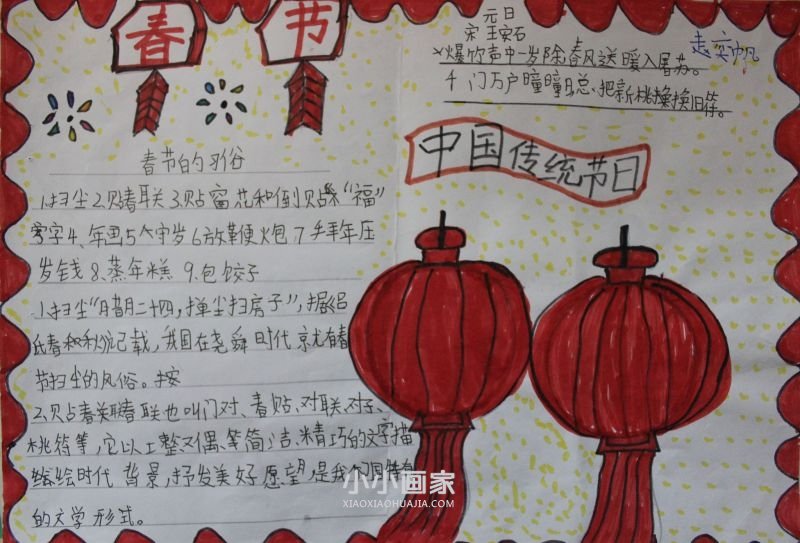 春节
元日
宋 王安石
爆竹声中一岁除,春风送暖入屠苏。
千门万户曈曈日,总把新桃换旧符。
赵奕帆
中国传统节日
春节的习俗
1.扫尘2.贴春联3.贴窗花和倒贴“福”
字4、年画5守岁6放鞭炮7.年压
岁钱8.蒸年糕 9.包饺子
1.扫尘“腊月二十四,掸尘扫房子”,据《吕
氏春秋》记载,我国在尧舜时代就有春
节扫尘的风俗。按
2.贴春联春联也叫门对、春贴、对联、对子、
桃符等,它以工整、对偶、简洁、精巧的文字描
绘时代背景,抒发美好愿望,是我国特有
的文学形式。
小小画家
XIAOXIAOHUAJIA.COM